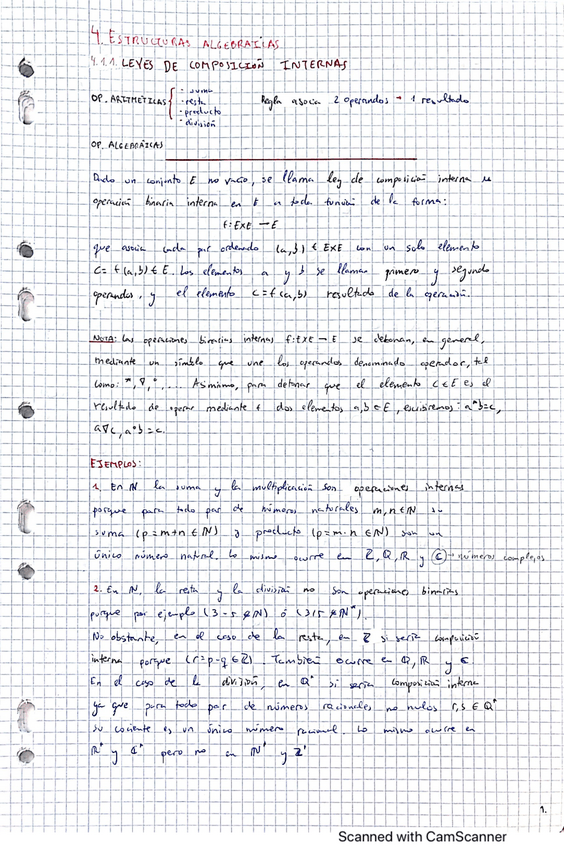 4. ESTRUCTURAS ALGEBRAICAS
4.1.1. LEYES DE COMPOSICIÓN INTERNAS
OP. ARITMÉTICAS { · suma
· resta
· producto
· división
Regla asocia 2 operandos → 1 resultado
OP. ALGEBRÁICAS
Dado un conjunto E no vacío, se llama ley de composición interna u
operación binaria interna en E a toda función de la forma:
f: E×E → E
que asocia cada par ordenado (a,b) ∈ E×E con un solo elemento
c = f(a,b) ∈ E. Los elementos a y b se llaman primero y segundo
operandos, y el elemento c = f(a,b) resultado de la operación.
NOTA: Las operaciones binarias internas f: E×E → E se denotan, en general,
mediante un símbolo que une los operandos denominado operador, tal
como: *, ∇, °, ... Asimismo, para denotar que el elemento c ∈ E es el
resultado de operar mediante f dos elementos a,b ∈ E, escribiremos: a*b=c,
a∇c, a°b=c.
EJEMPLOS:
1. En ℕ la suma y la multiplicación son operaciones internas
porque para todo par de números naturales m,n ∈ ℕ su
suma (p=m+n ∈ ℕ) y producto (p=m·n ∈ ℕ) son un
único número natural. Lo mismo ocurre en ℤ, ℚ, ℝ y ℂ → números complejos
2. En ℕ, la resta y la división no son operaciones binarias
porque por ejemplo (3-5 ∉ ℕ) ó (3/5 ∉ ℕ*).
No obstante, en el caso de la resta, en ℤ si sería composición
interna porque (r=p-q ∈ ℤ). También ocurre en ℚ, ℝ y ℂ
En el caso de la división, en ℚ* si sería composición interna
ya que para todo par de números racionales no nulos r,s ∈ ℚ*
su cociente es un único número racional. Lo mismo ocurre en
ℝ* y ℂ* pero no en ℕ* y ℤ*
1.
Scanned with CamScanner